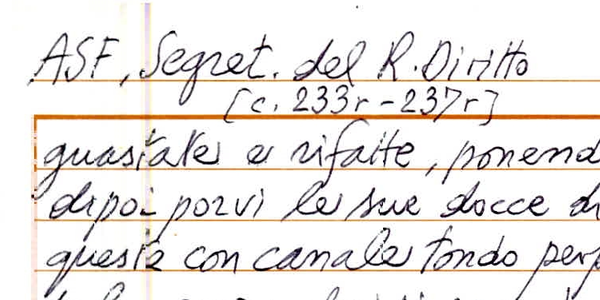 ASF, Segret. del R. Diritto
[c. 233r - 237r]
guastate e rifatte, ponend
dipoi porvi le sue docce di
queste con canale tondo perp